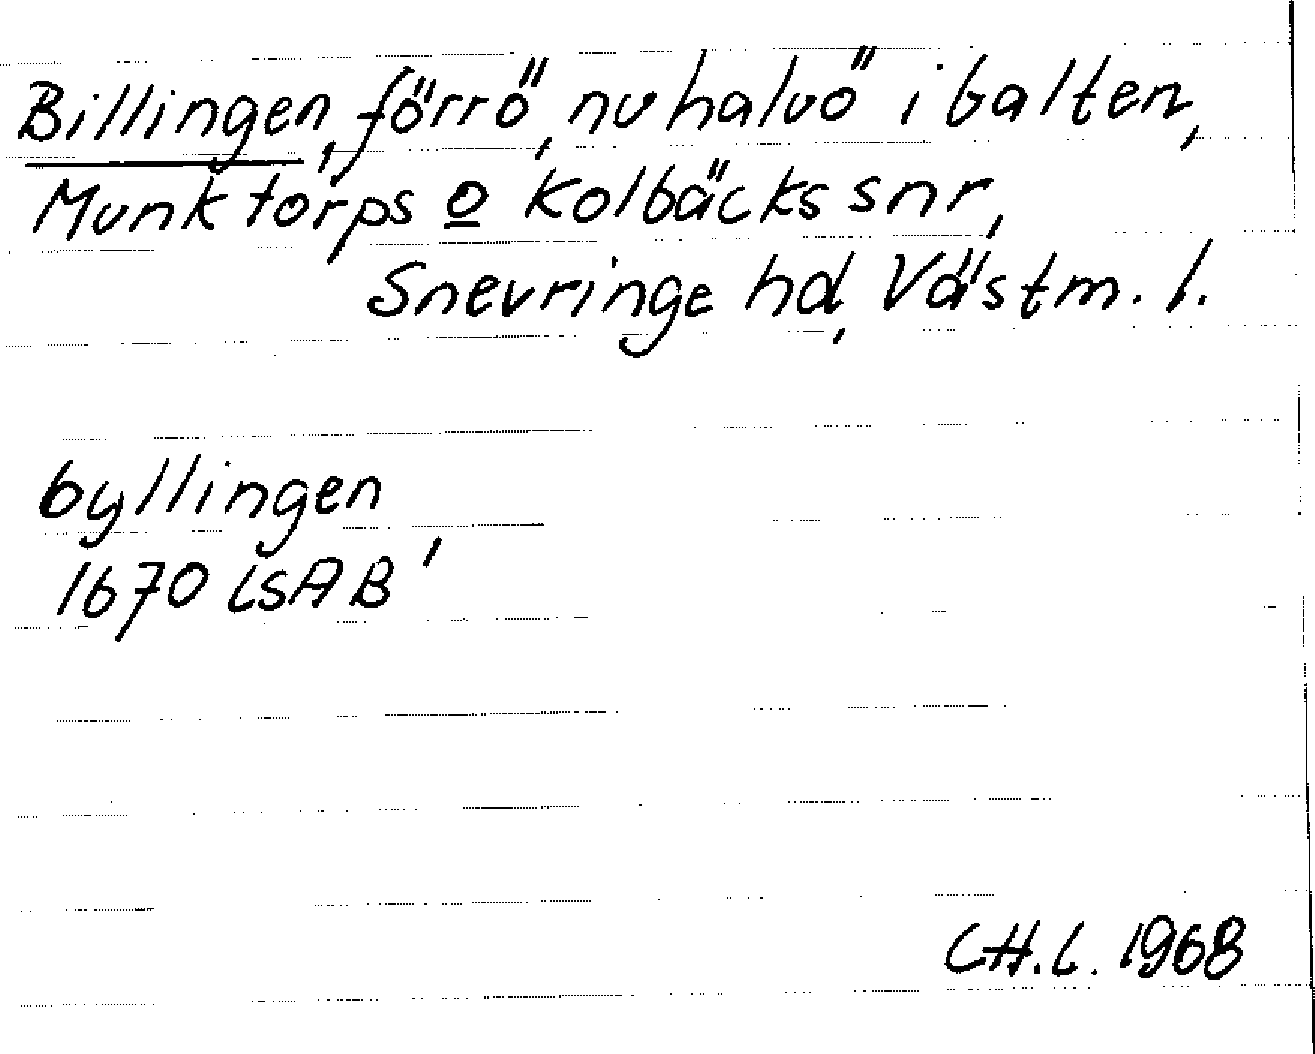 Billingen, förrö, nu halvö i Galten,
Munktorps o Kolbäcks snr,
Snevringe hd, Västm. l.
byllingen
1670 LSA B'
CH.L. 1968